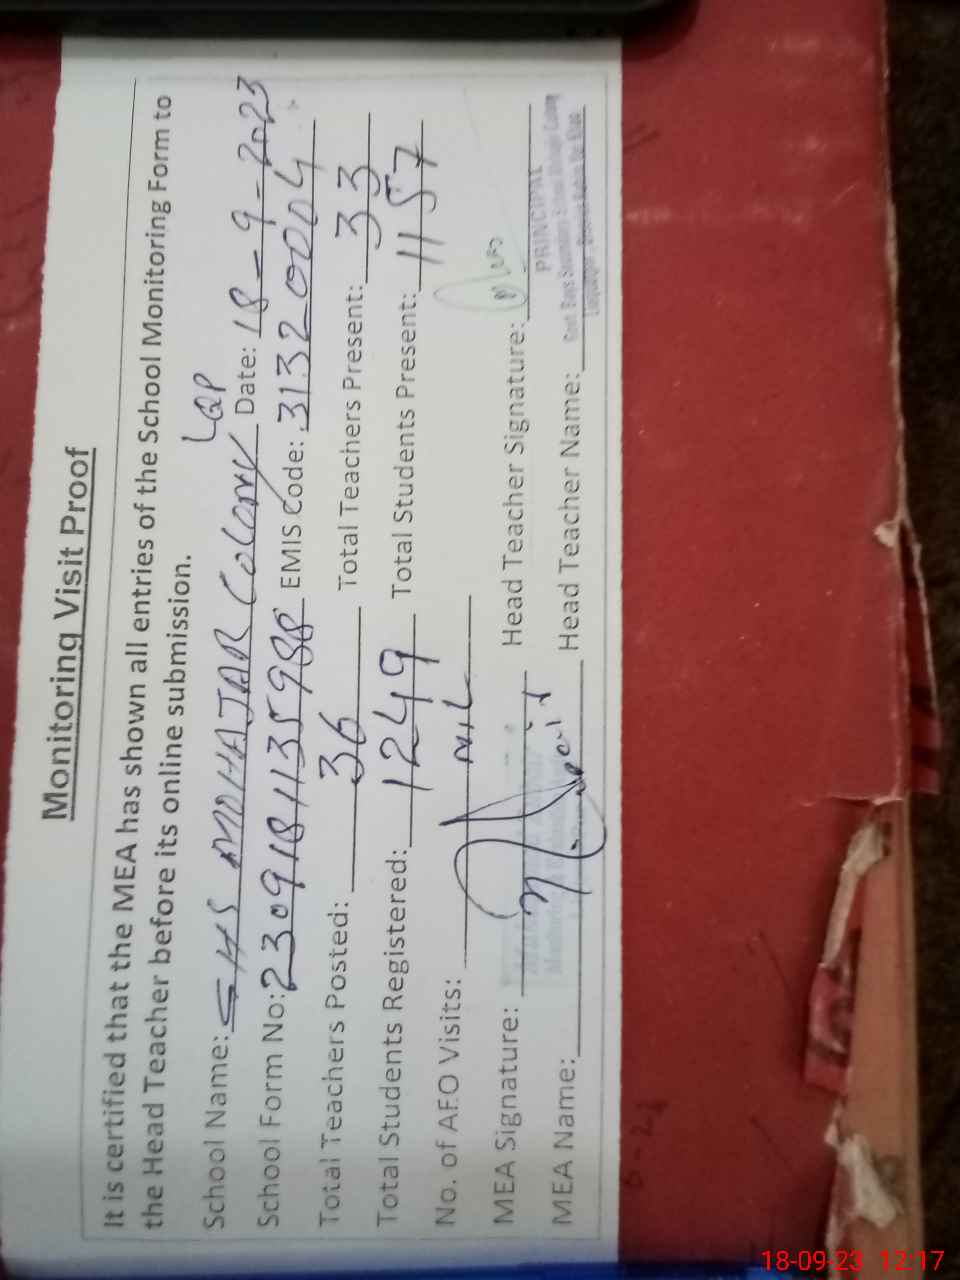 Monitoring Visit Proof
It is certified that the MEA has shown all entries of the School Monitoring Form to
the Head Teacher before its online submission.
School Name: GHS MOHAJAR Colony LQP Date: 18-9-2023
School Form No: 230918113598 EMIS Code: 31320004
Total Teachers Posted: 36 Total Teachers Present: 33
Total Students Registered: 1249 Total Students Present: 1157
No. of AEO Visits: NIL
MEA Signature: Head Teacher Signature:
PRINCIPAL
MEA Name: Head Teacher Name:
18-09-23 12:17